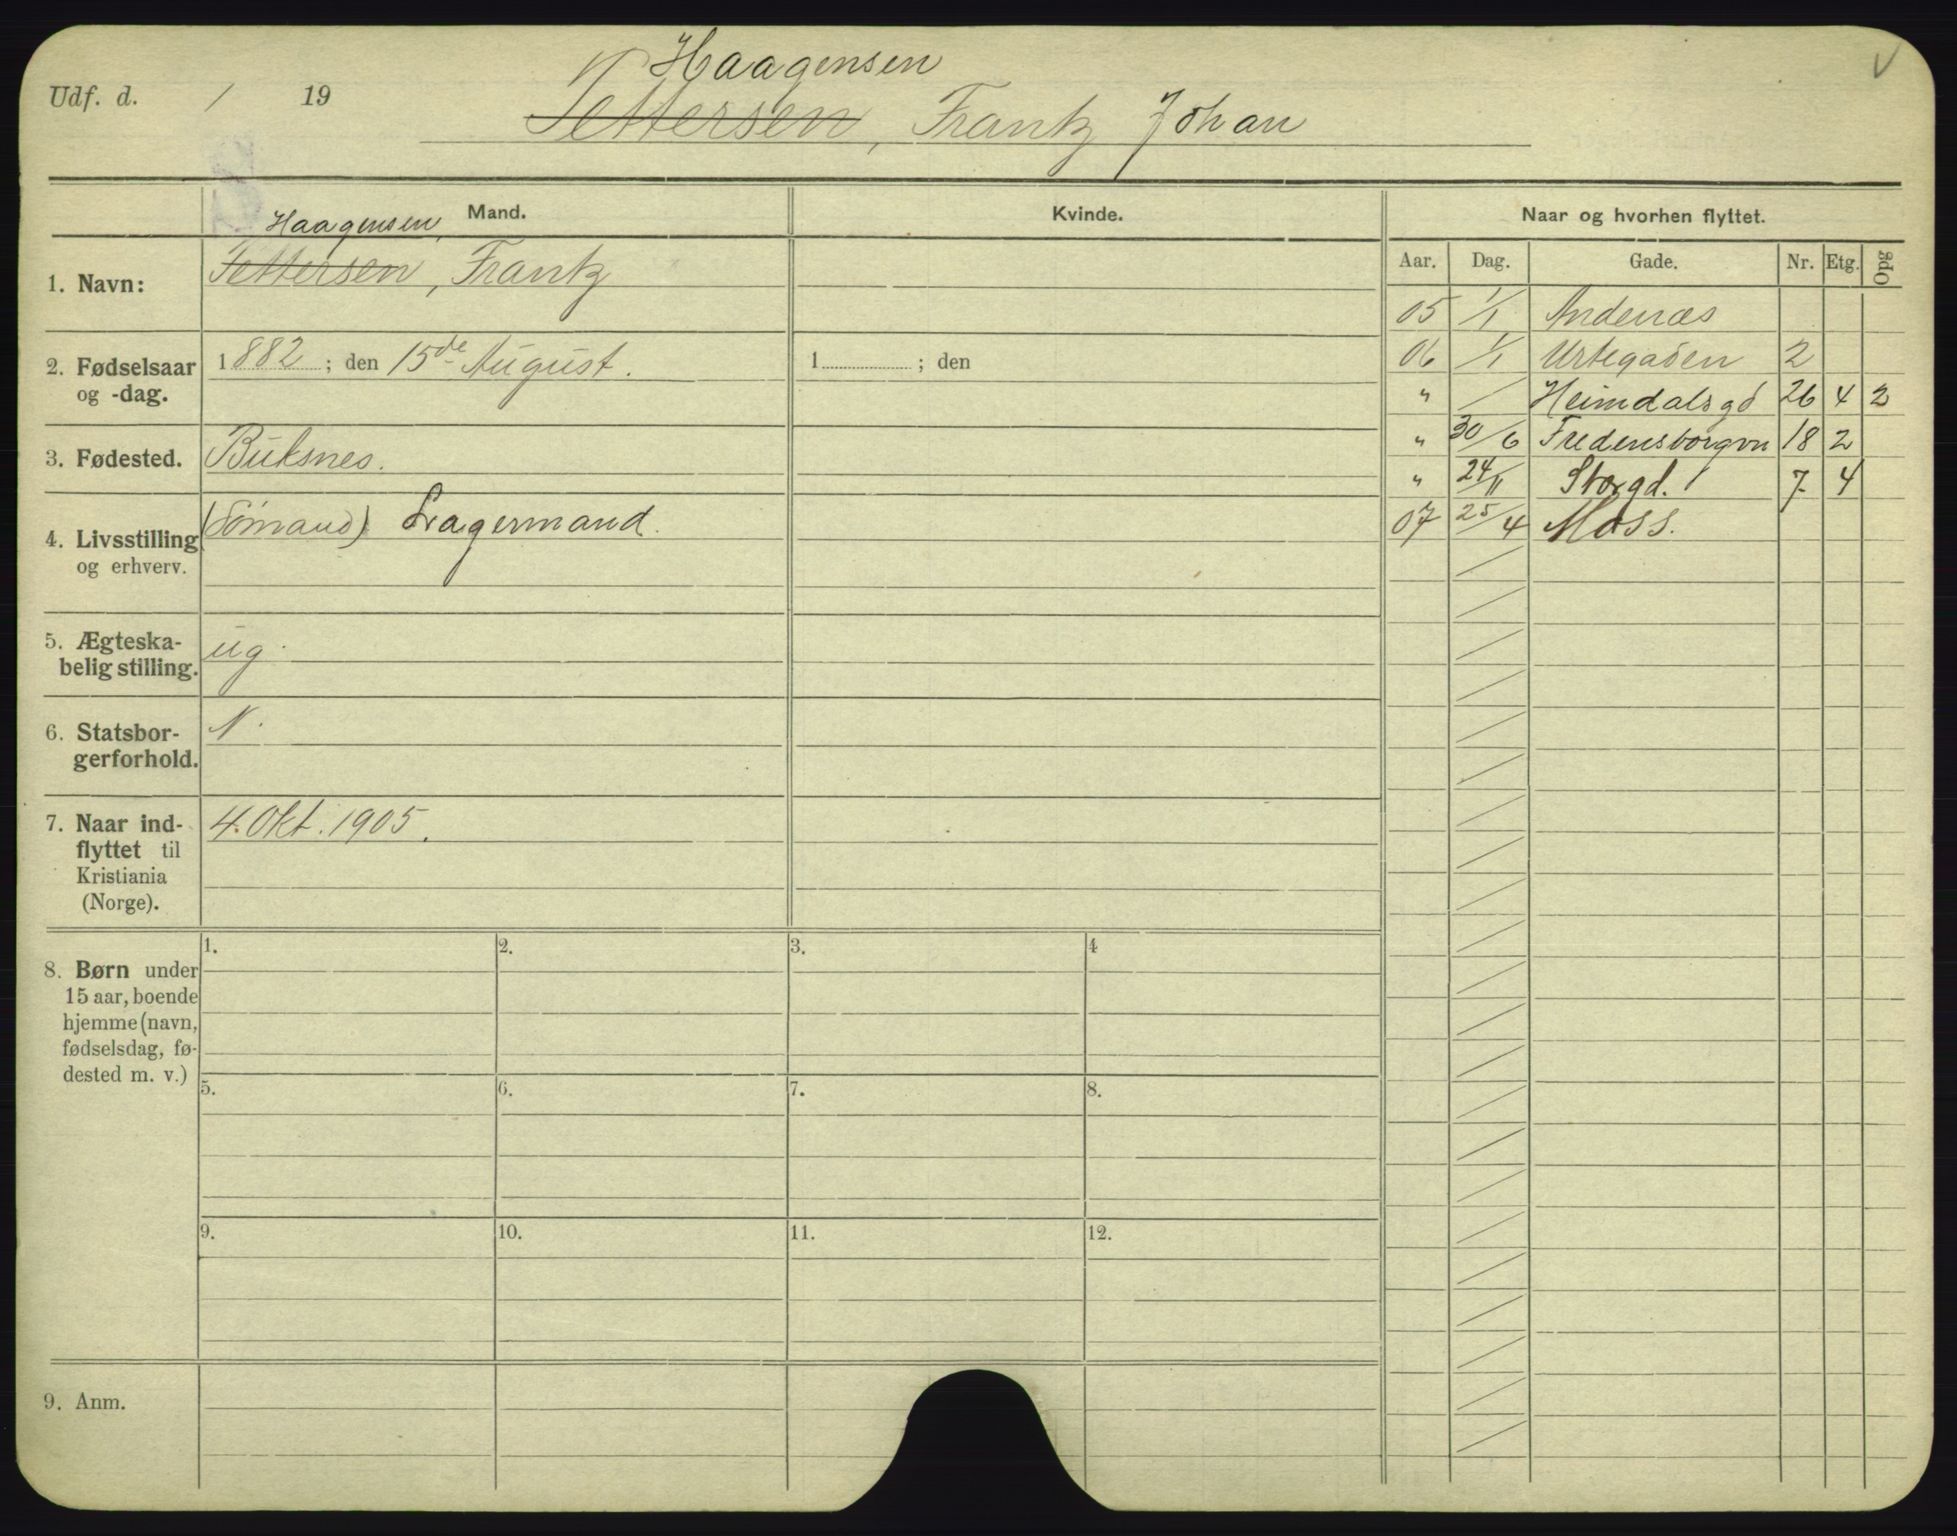 Haagensen
Udf. d. / 19
Pettersen, Frantz Johan
Mand.
Kvinde.
Naar og hvorhen flyttet.
Haagensen,
1. Navn: Pettersen, Frantz
Aar. Dag. Gade. Nr. Etg. Opg
05 1/1 Andenæs
06 1/1 Urtegaden 2
" / Heimdalsgd 26 4 2
" 30/6 Fredensborgvn 18 2
" 24/11 Storgd. 7 4
07 25/4 Moss.
2. Fødselsaar 1882; den 15de August. 1 ; den
og -dag.
3. Fødested. Buksnes.
(Sömand) Lagermand.
4. Livsstilling
og erhverv.
5. Ægteska-
belig stilling. ug.
6. Statsbor- N.
gerforhold.
7. Naar ind- 4. Okt. 1905.
flyttet til
Kristiania
(Norge).
8. Børn under
15 aar, boende
hjemme (navn,
fødselsdag, fø-
dested m. v.)
1. 2. 3. 4
5. 6. 7. 8.
9. 10. 11. 12.
9. Anm.